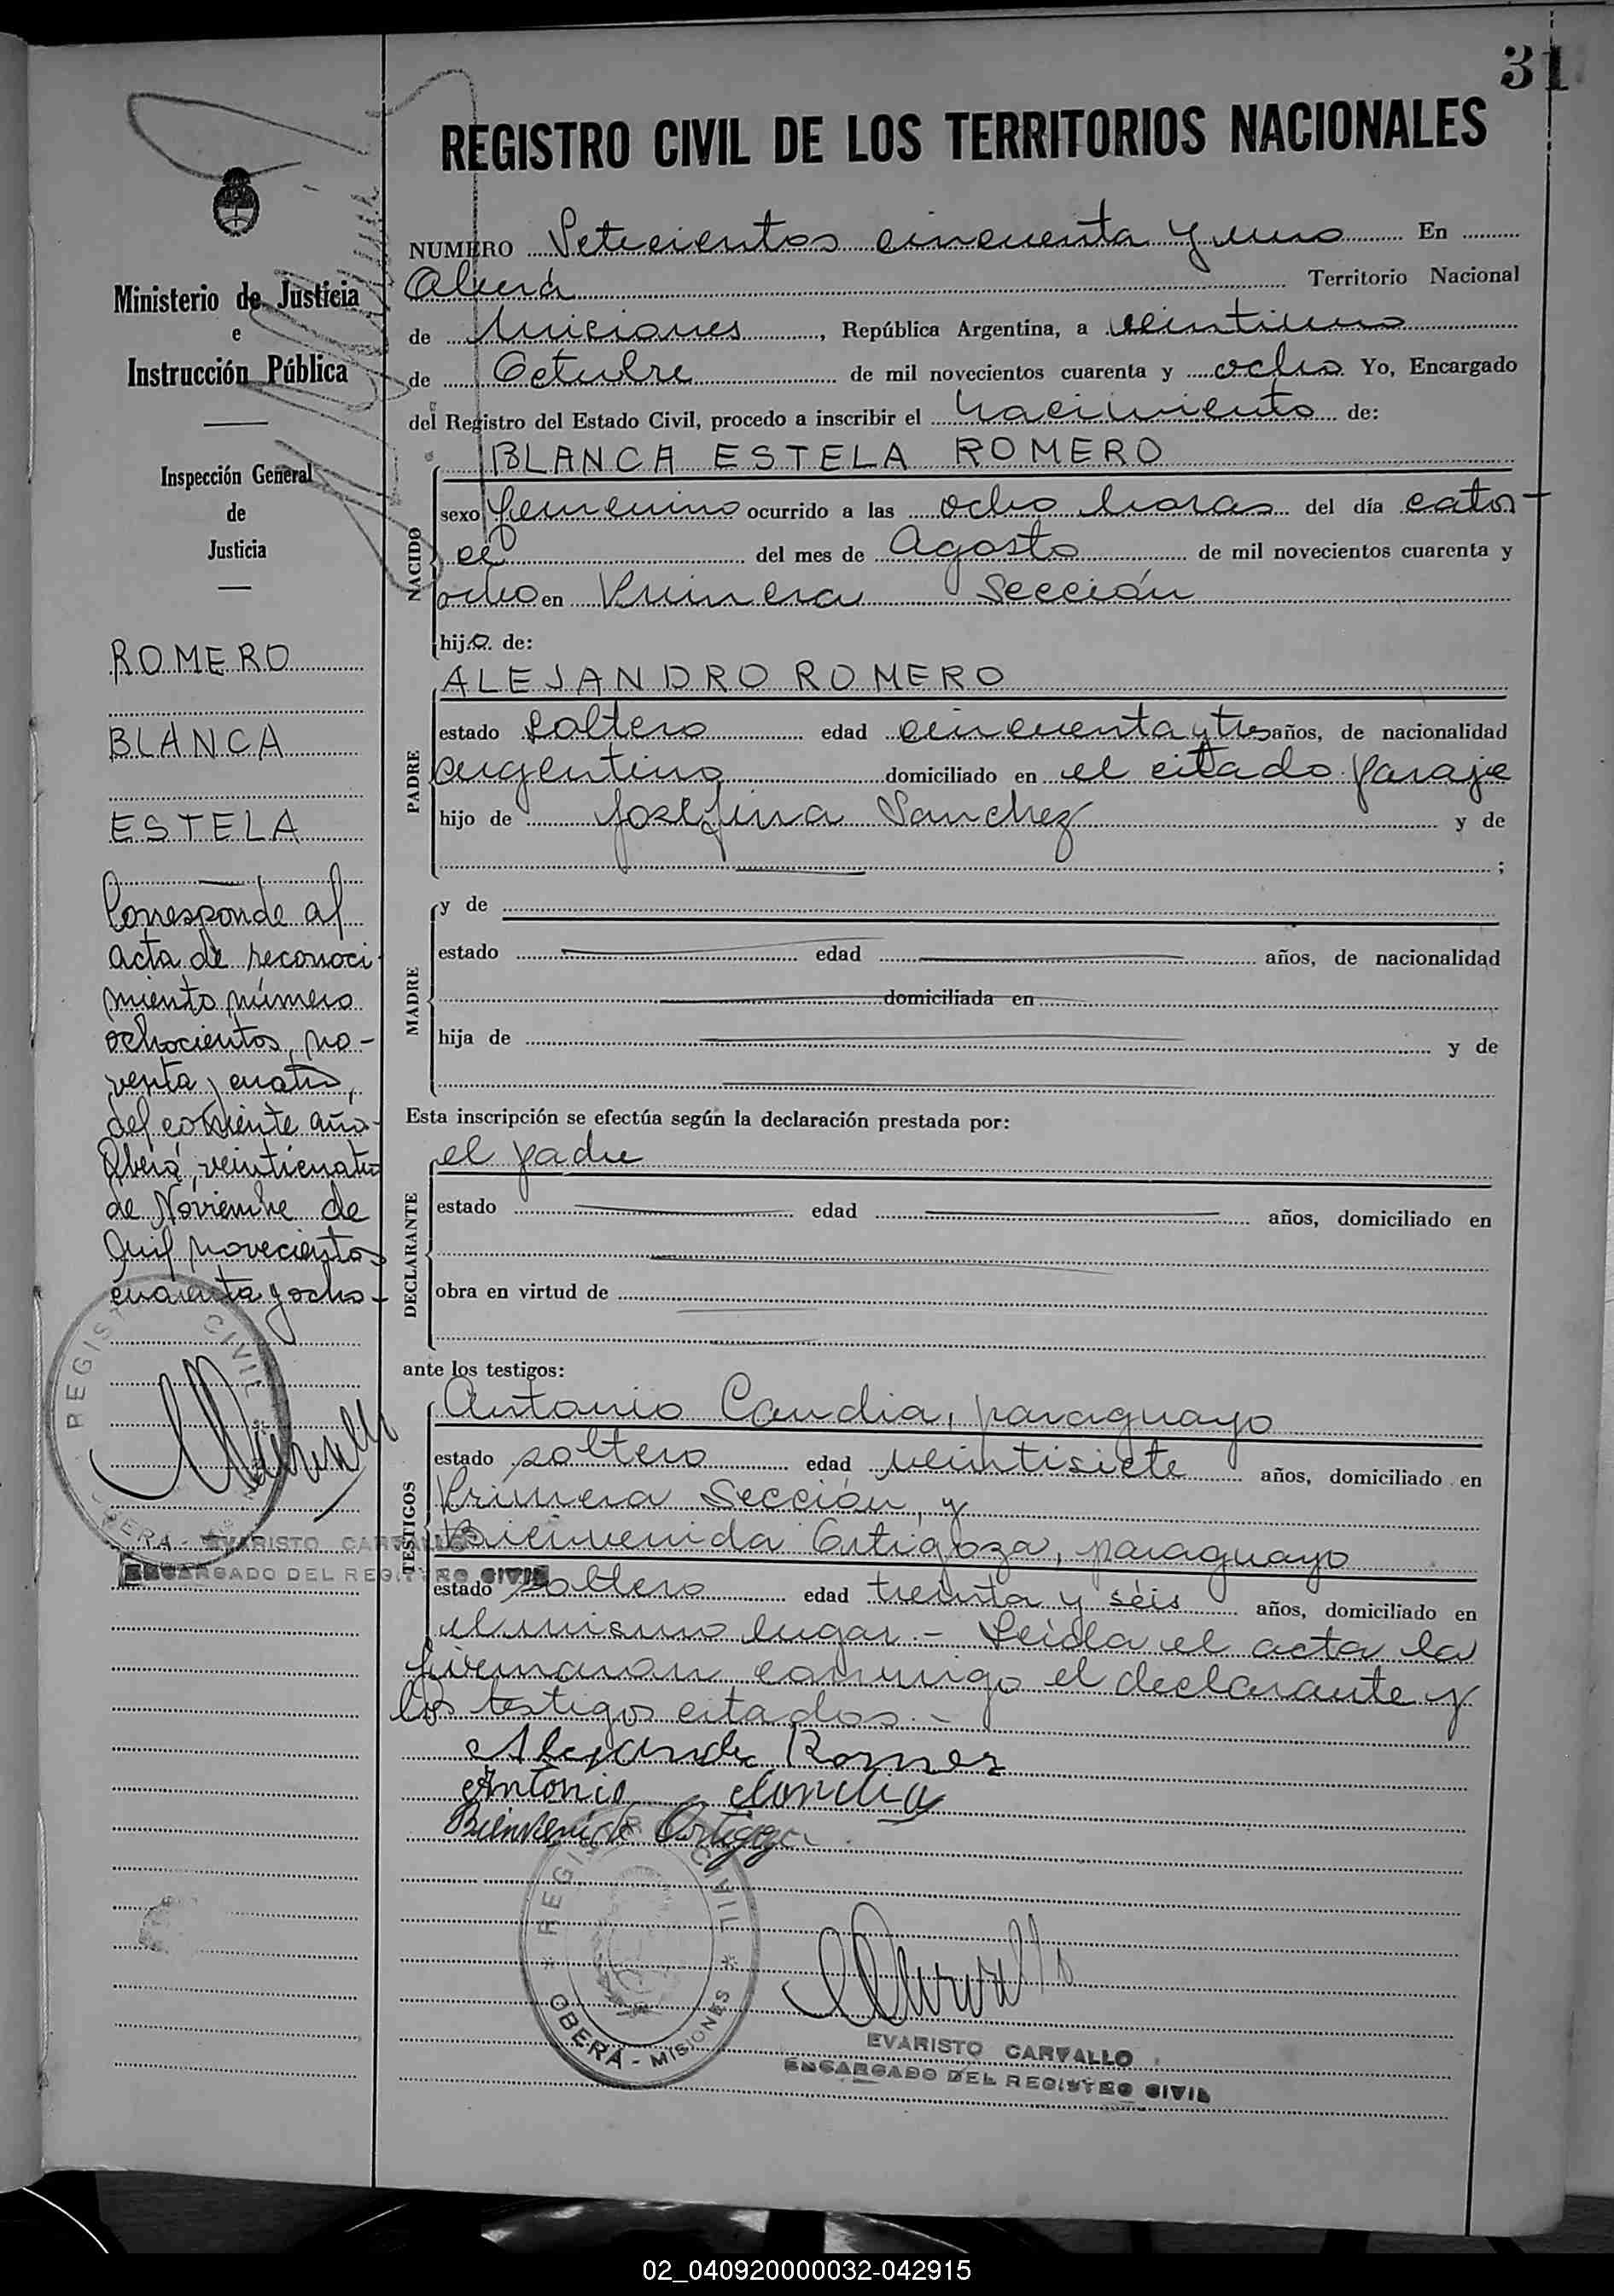 31
REGISTRO CIVIL DE LOS TERRITORIOS NACIONALES
Ministerio de Justicia
e
Instrucción Pública
Inspección General
de
Justicia
ROMERO
BLANCA
ESTELA
Corresponde al
acta de reconoci-
miento número
ochocientos no-
venta y cuatro,
del corriente año.
Oberá, veinticuatro
de Noviembre de
mil novecientos
cuarenta y ocho-
REGISTRO CIVIL
EVARISTO CARVALLO
ENCARGADO DEL REGISTRO CIVIL
NUMERO Setecientos cincuenta y uno En
Oberá Territorio Nacional
de Misiones, República Argentina, a veintiuno
de Octubre de mil novecientos cuarenta y ocho Yo, Encargado
del Registro del Estado Civil, procedo a inscribir el nacimiento de:
NACIDO
BLANCA ESTELA ROMERO
sexo femenino ocurrido a las ocho horas del día cator-
ce del mes de Agosto de mil novecientos cuarenta y
ocho en Primera Sección
hija de:
PADRE
ALEJANDRO ROMERO
estado soltero edad cincuenta y tres años, de nacionalidad
argentino domiciliado en el citado paraje
hijo de Josefina Sanchez y de
;
MADRE
y de
estado edad años, de nacionalidad
domiciliada en
hija de y de
Esta inscripción se efectúa según la declaración prestada por:
DECLARANTE
el padre
estado edad años, domiciliado en
obra en virtud de
ante los testigos:
TESTIGOS
Antonio Candia, paraguayo
estado soltero edad veintisiete años, domiciliado en
Primera Sección, y
Bienvenida Ortigoza, paraguayo
estado soltero edad treinta y séis años, domiciliado en
el mismo lugar.- Leída el acta la
firmaron conmigo el declarante y
los testigos citados.-
Alejandro Romero
Antonio Candia
Bienvenido Ortigoza
REGISTRO CIVIL
OBERÁ - MISIONES
EVARISTO CARVALLO
ENCARGADO DEL REGISTRO CIVIL
02_040920000032-042915